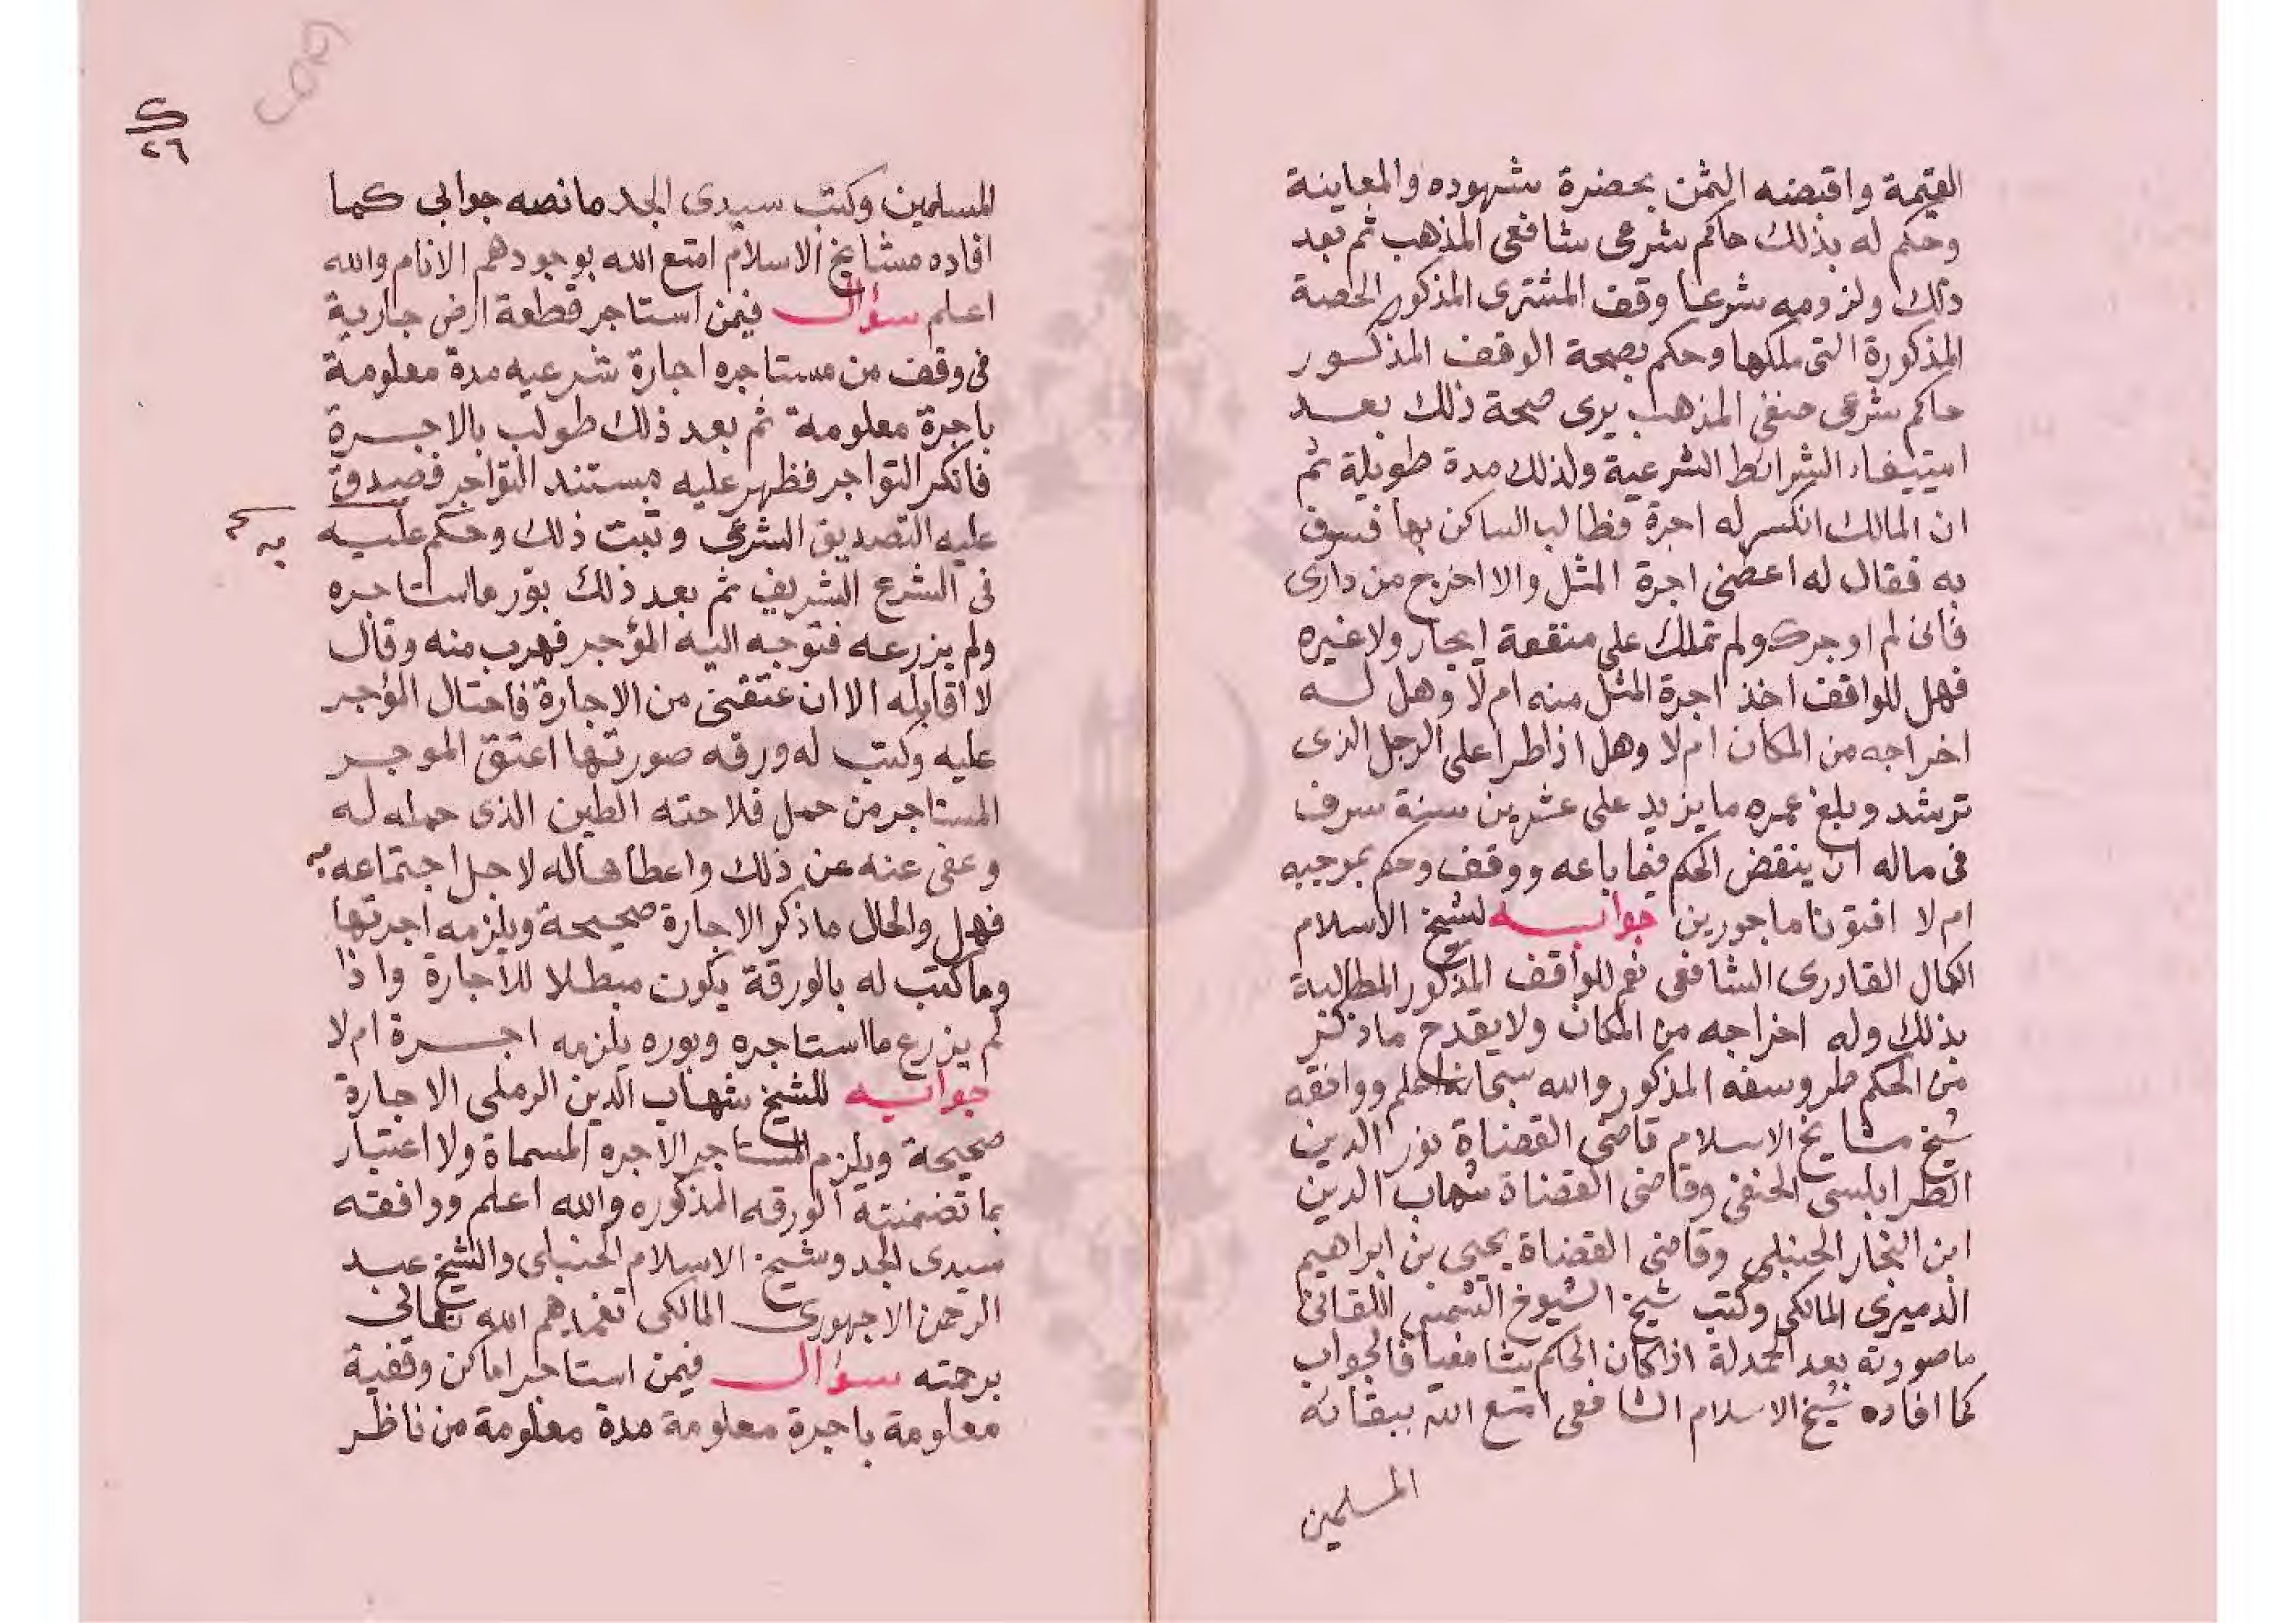 القيمة واقبضه الثمن بحضرة شهوده والمعاينة
وحكم له بذلك حاكم شرعى شافعى المذهب ثم بعد
ذلك ولزومه شرعا وقف المشترى المذكور الحصة
المذكورة التى ملكها وحكم بصحة الوقف المذكور
حاكم شرعى حنفى المذهب يرى صحة ذلك بعد
استيفاء الشرائط الشرعية ولذلك مدة طويلة ثم
ان المالك انكسر له اجرة فطالب الساكن بها فسوف
به فقال له اعطنى اجرة المثل والا اخرج من دارى
فانى لم اوجرك ولم تملك على منفعة ايجار ولا غيره
فهل للواقف اخذ اجرة المثل منه ام لا وهل له
اخراجه من المكان ام لا وهل اذا طرا على الرجل الذى
ترشد وبلغ عمره ما يزيد على عشرين سنة سرف
فى ماله ان ينقض الحكم فيما باعه ووقف وحكم بموجبه
ام لا افتونا ماجورين جوابه لشيخ الاسلام
الكمال القادرى الشافعى نعم للواقف المذكور المطالبة
بذلك وله اخراجه من المكان ولا يقدح ما ذكر
من الحكم طرو سفه المذكور والله سبحانه اعلم ووافقه
شيخ مشايخ الاسلام قاضى القضاة نور الدين
الطرابلسى الحنفى وقاضى القضاة شهاب الدين
ابن النجار الحنبلى وقاضى القضاة يحيى بن ابراهيم
الدميرى المالكى وكتب شيخ الشيوخ الشمس اللقانى
ما صورته بعد الحمدلة اذا كان الحكم شافعيا فالجواب
كما افاده شيخ الاسلام الشافعى امتع الله ببقائه
المسلمين
٢٦
المسلمين وكتب سيدى الجد ما نصه جوابى كما
افاده مشايخ الاسلام امتع الله بوجودهم الانام والله
اعلم سؤال فيمن استاجر قطعة ارض جارية
فى وقف من مستاجره اجارة شرعيه مدة معلومة
باجرة معلومة ثم بعد ذلك طولب بالاجرة
فانكر التواجر فظهر عليه مستند التواجر فصدق
عليه التصديق الشرعى وثبت ذلك وحكم عليه
به
فى الشرع الشريف ثم بعد ذلك بوّر ما استاجره
ولم يزرعه فتوجه اليه المؤجر فهرب منه وقال
لا اقابله الا ان عتقنى من الاجارة فاحتال المؤجر
عليه وكتب له ورقه صورتها اعتق الموجر
المستاجر من حمل فلاحته الطين الذى حمله له
وعفى عنه عن ذلك واعطاها له لاجل اجتماعه به
فهل والحال ما ذكر الاجارة صحيحة ويلزمه اجرتها
وما كتب له بالورقة يكون مبطلا للاجارة واذا
لم يزرع ما استاجره وبوره يلزمه اجرة ام لا
جوابه للشيخ شهاب الدين الرملى الاجارة
صحيحة ويلزم المستاجر الاجره المسماة ولا اعتبار
بما تضمنته الورقه المذكوره والله اعلم ووافقه
سيدى الجد وشيخ الاسلام الحنبلى والشيخ عبد
الرحمن الاجهورى المالكى تغمدهم الله تعالى
برحمته سؤال فيمن استاجر اماكن وقفية
معلومة باجرة معلومة مدة معلومة من ناظر